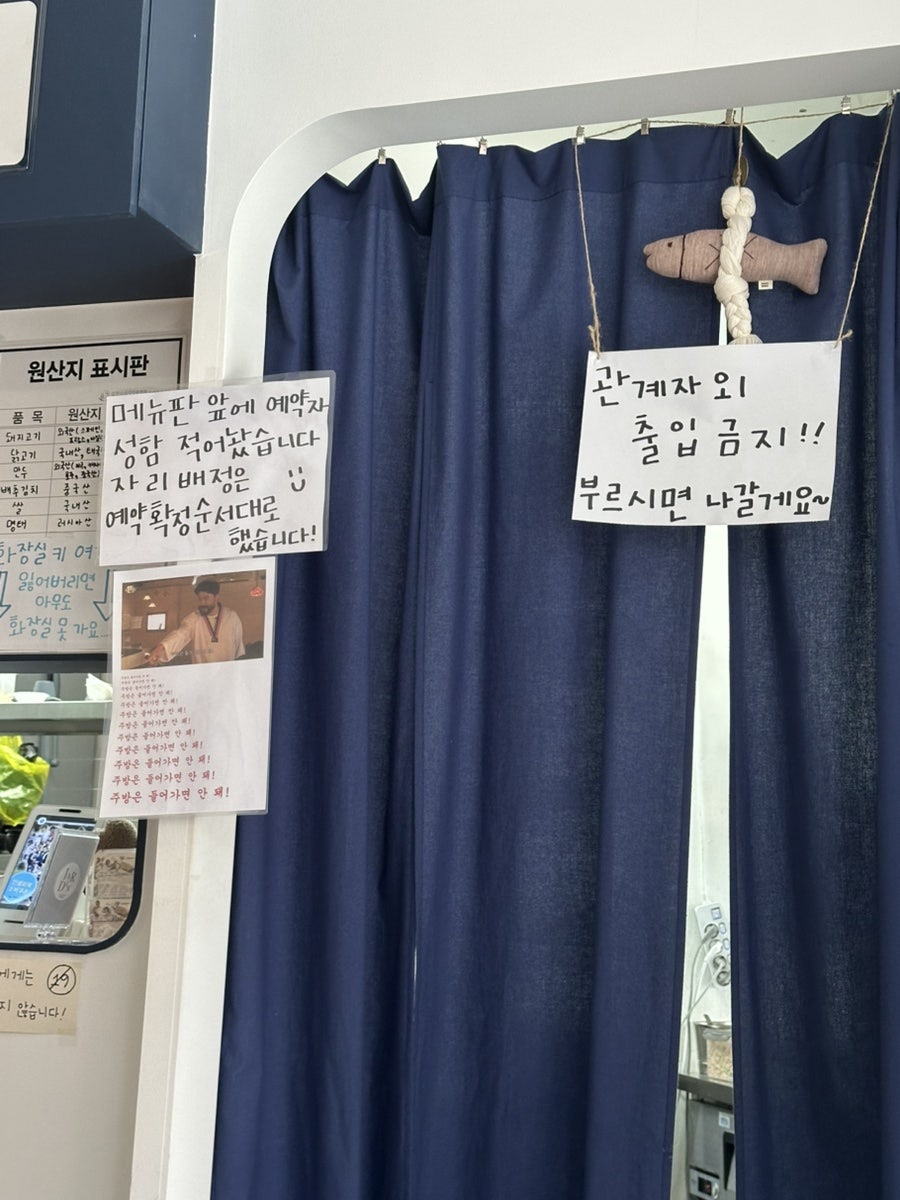 원산지 표시판
품 목 원산지
돼지고기 외국산(스페인,
닭고기 국내산, 태국
만두 외국산(
배추김치 중국산
쌀 국내산
명태 러시아산
화장실 키
잃어버리면
아무도
화장실 못 가요...
메뉴판 앞에 예약자
성함 적어놨습니다
자리 배정은
예약확정순서대로
했습니다!
주방은 들어가면 안 돼!
주방은 들어가면 안 돼!
주방은 들어가면 안 돼!
주방은 들어가면 안 돼!
주방은 들어가면 안 돼!
주방은 들어가면 안 돼!
주방은 들어가면 안 돼!
주방은 들어가면 안 돼!
주방은 들어가면 안 돼!
주방은 들어가면 안 돼!
관계자 외
출입 금지!!
부르시면 나갈게요~
에게는 19
지 않습니다!